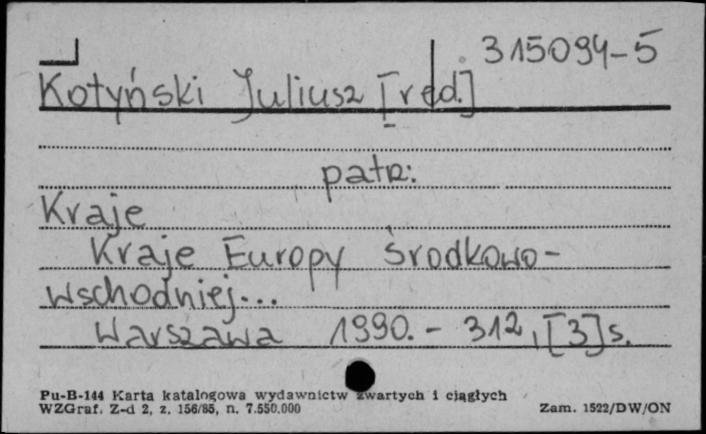 315094-5
Kotyński Juliusz [red.]
patrz:
Kraje
Kraje Europy środkowo-
wschodniej...
Warszawa 1990. - 312, [3] s.
Pu-B-144 Karta katalogowa wydawnictw zwartych i ciągłych
WZGraf. Z-d 2, z. 156/85, n. 7.550.000
Zam. 1522/DW/ON